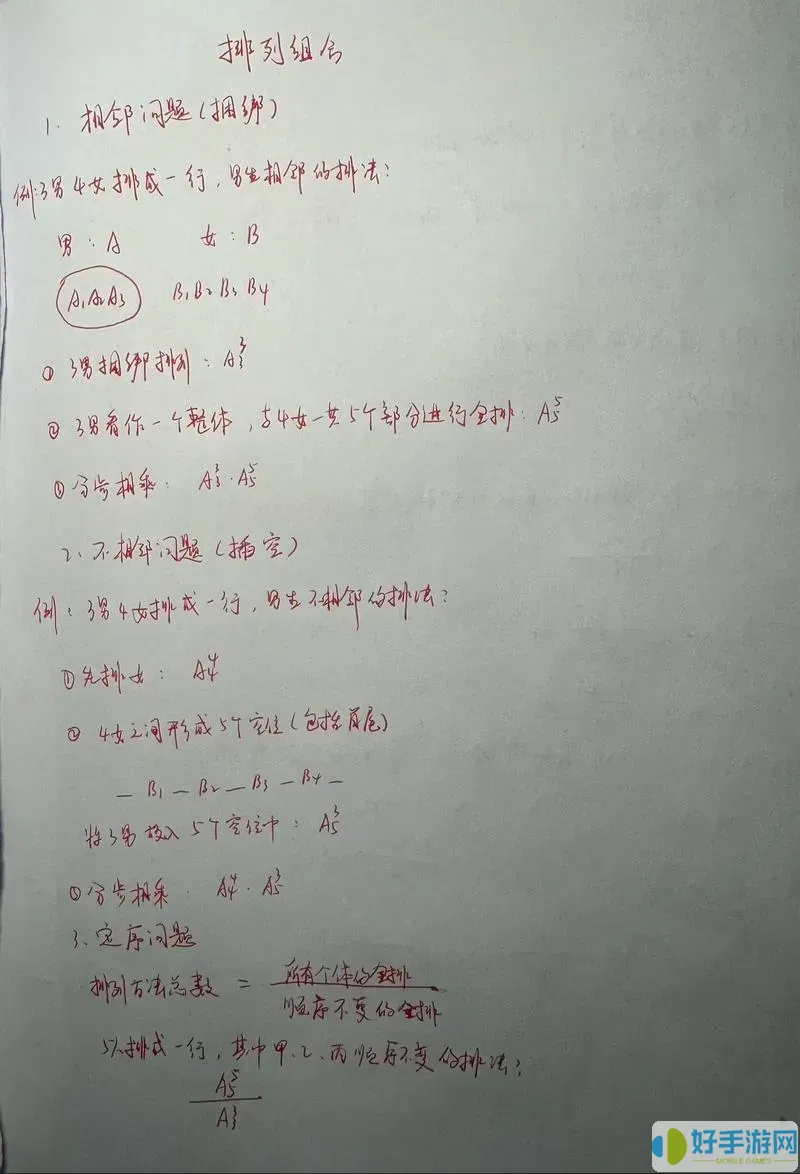 排列组合
1. 相邻问题(捆绑)
例:3男4女排成一行,男生相邻的排法:
男:A 女:B
A₁A₂A₃ B₁B₂B₃B₄
① 3男捆绑排列:A₃³
② 3男看作一个整体,与4女一共5个部分进行全排:A₅⁵
③ 分步相乘:A₃³·A₅⁵
2、不相邻问题(插空)
例:3男4女排成一行,男生不相邻的排法:
① 先排女:A₄⁴
② 4女之间形成5个空位(包括首尾)
_ B₁ _ B₂ _ B₃ _ B₄ _
将3男放入5个空位中:A₅³
③ 分步相乘:A₄⁴·A₅³
3、定序问题
排列方法总数 = 所有个体的全排
顺序不变的全排
5人排成一行,其中甲、乙、丙顺序不变的排法:
A₅⁵
A₃³
好手游网
MOBILE GAMES